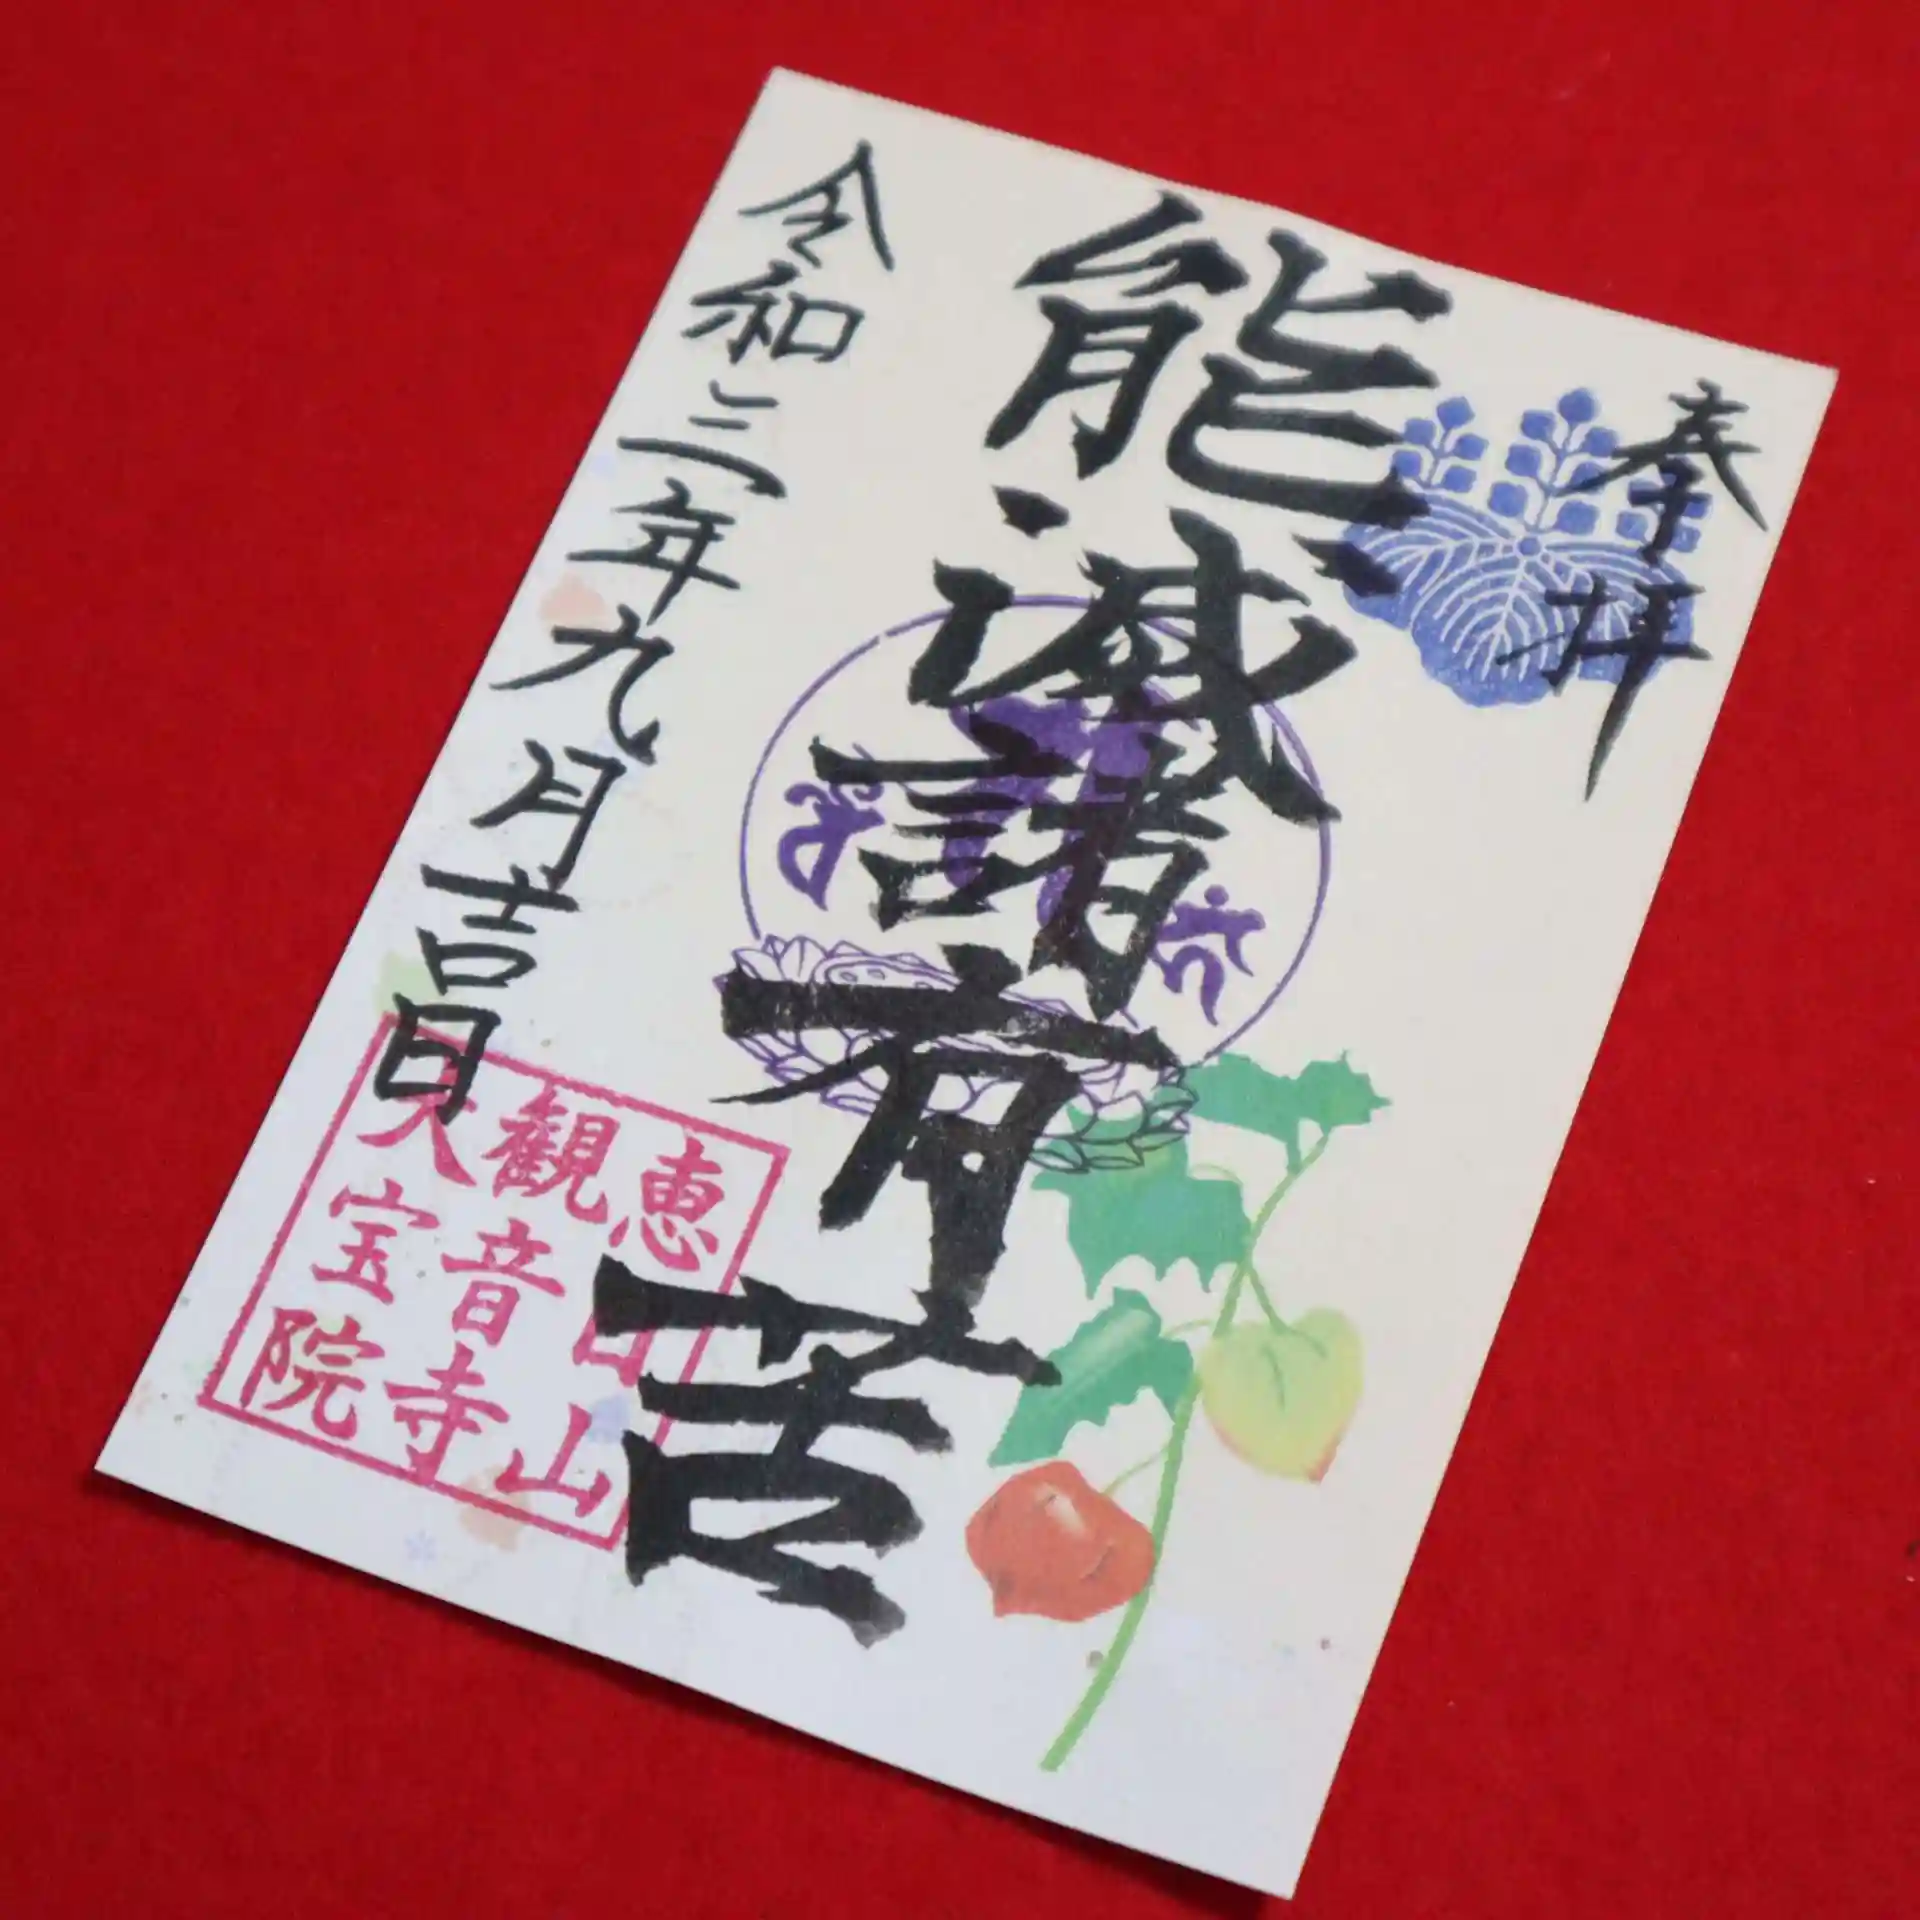 奉拝
能滅諸有苦
令和三年九月吉日
恵日山
観音寺
大宝院